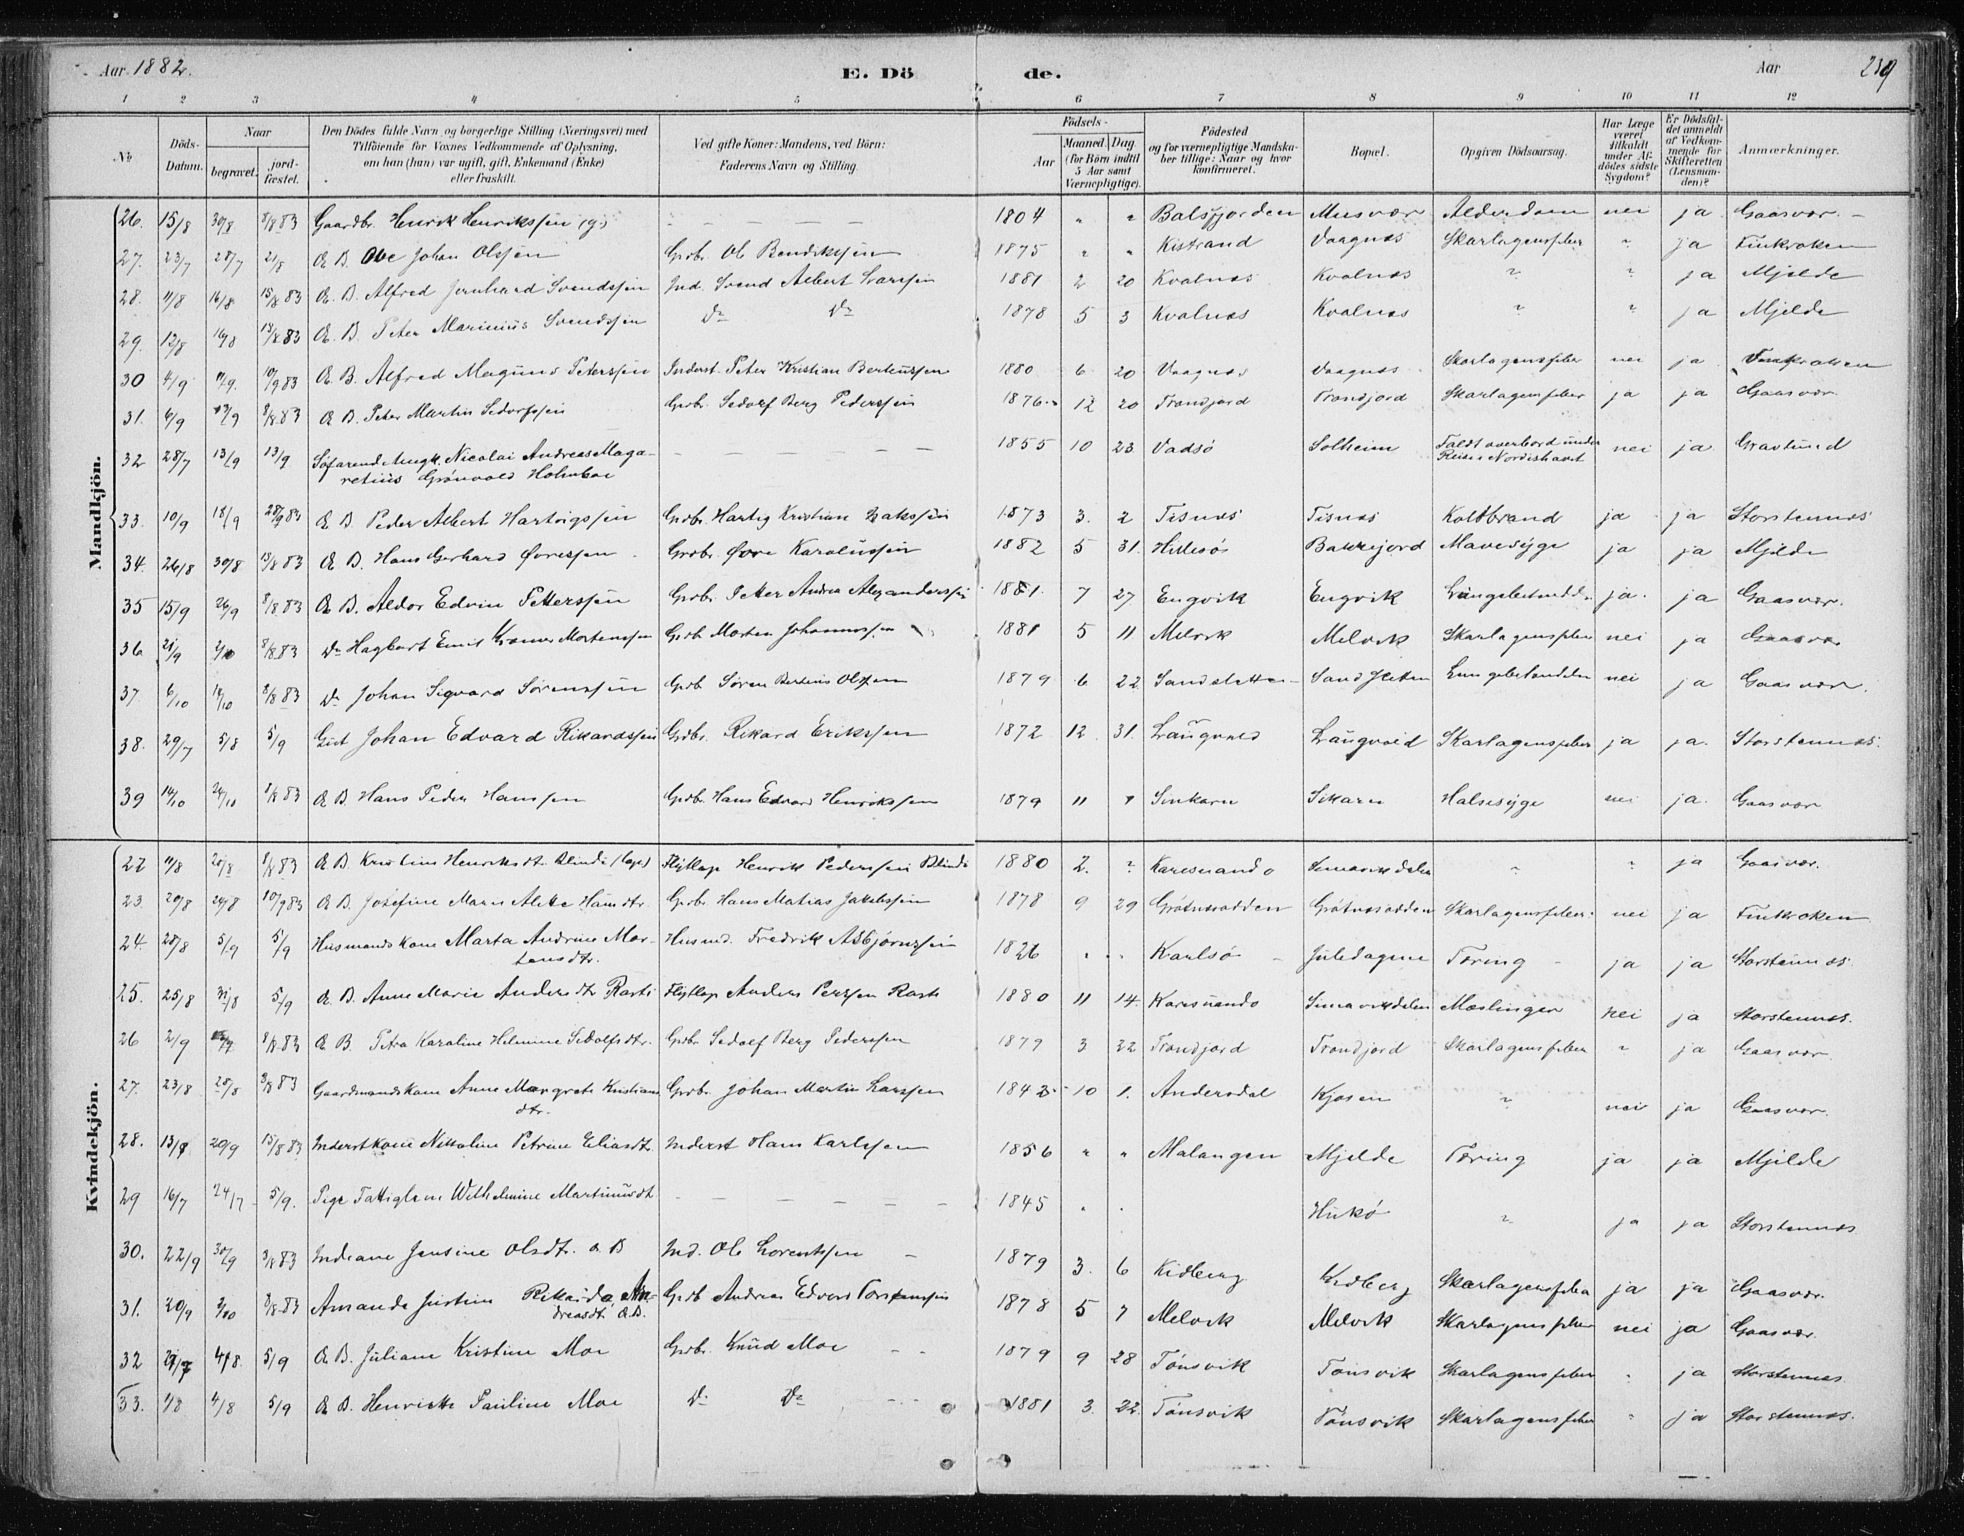 Aar 1882. E. Dö de. Aar 239
1 2 3 4 5 6 7 8 9 10 11 12
No. Döds-Datum. Naar begravet. jordfæstet. Den Dödes fulde Navn og borgerlige Stilling (Næringsvei) med Tilföiende for Voxnes Vedkommende af Oplysning, om han (hun) var ugift, gift, Enkemand (Enke) eller fraskilt. Ved gifte Koner: Mandens, ved Börn: Faderens Navn og Stilling. Födsels- Aar Maaned. Dag. (for Börn indtil 5 Aar samt Værnepligtige). Födested og for værnepligtige Mandskaber tillige: Naar og hvor konfirmeret. Bopæl. Opgiven Dödsaarsag. Har Læge været tilkaldt under Afdödes sidste Sygdom? Er Dödsfaldet anmeldt af Vedkommende for Skifteretten (Lensmanden)? Anmærkninger.
Mandkjön.
26. 15/8 30/8 8/8 83 Gaardbr. Henrik Henrikssen (g) — — — 1804 " " Balsfjorden Musvær Alderdom nei ja Gaasvær. —
27. 23/7 28/7 21/8 Æ. B. Ole Johan Olssen Grdbr. Ole Bendikssen 1875 " " Kistrand Vaagnæs Skarlagensfeber " ja Finkroken
28. 11/8 16/8 13/8 83 Æ. B. Alfred Jernhard Svendssen Ind. Svend Albert Ivarssen 1881 2 20 Kvalnæs Kvalnæs " " ja Mjelde
29. 12/8 16/8 13/8 83 Æ. B Peter Marinius Svendssen Do Do 1878 5 3 Kvalnæs Kvalnæs " " ja Mjelde
30 4/9 11/9. 10/9 83 Æ. B. Alfred Magnus Peterssen Inderst. Peter Kristian Berteussen 1880 6 20 Vaagnæs Vaagnæs Skarlagensfeber nei ja Finkroken
31. 6/9 13/9 8/8 83 Æ B. Peter Martin Sedolfssen Grdbr. Sedolf Berg Pederssen 1876 12 20 Tronfjord Tronfjord Skarlagensfeber ja ja Gaasvær.
32 28/7 13/9 13/9 Söfarende Ungk. Nicolai Andreas Maga-
retius Grönvold Holmboe — — — 1855 10 23 Vadsö Solheim Faldt overbord under Reise i Nordishavet nei ja Gravlund
33. 10/9 18/9 28/9 83 Æ B. Peder Albert Hartvigssen Grdbr. Hartvig Kristian Isakssen 1873 3. 2 Tisnæs Tisnæs Koldbrand ja ja Storstennæs
34. 26/8 30/8 13/8 83 Æ B. Hans Gerhard Övressen Grdbr. Övre Karolussen 1882 5 31. Hillesös Bakkejord Mavesyge ja ja Mjelde
35 15/9 26/9 8/8 83 Æ B. Aldor Edvin Petterssen Grdbr. Petter Andrea Alexanderssen 1881. 7 27 Engvik Engvik Lungebetændelse ja. ja Gaasvær.
36 21/9 2/10 8/8 83 Do Hagbart Emil Kramer Mortenssen Grdb Morten Johannessen 1881 5 11 Melvik Melvik Skarlagensfeber nei ja Gaasvær
37. 6/10 14/10 8/8 83 Do Johan Sigvard Sörenssen Grdb Sören Berteus Olssen 1879 6 22 Sandsletten Sandsletten Lungebetændelse nei ja Gaasvær.
38. 29/7 5/8 5/9 Gut Johan Edvard Rikardssen Grdbr. Rikard Erikssen 1872 12. 31. Laugvold Laugvold Skarlagensfeber ja ja. Storstennæs.
39 14/10 24/10 8/8 83 Æ B. Hans Peder Hanssen Grdbr. Hans Edvard Henrikssen 1879 11 1 Sokarn Halsesyge nei ja. Gaasvær
Kvindekjön.
22 11/8 20/8 8/8 83 Æ B Kristine Henriksdtr. Blinde (Lap) Flytlap Henrik Pederssen Blinde 1880 2. " Karesuando Simavikdalen " " ja Gaasvær.
23 20/8 24/8 10/9 83 Æ B. Josefine Marie Aleke Hansdtr. Grdbr. Hans Matias Jakobssen 1878 9 29 Grötnesodden Grötnesodden Skarlagensfeber. nei ja Finkroken
24. 28/8 5/9 5/9 Husmands Kone Marta Andrine Mor-
tensdtr. Husmd. Fredrik Asbjörnssen 1826 " " Karlsö Juledagene Tæring ja ja Storstennæs
25. 25/8 31/8 5/9 Æ. B. Anne Marie Andersdtr Rasti Flytlap Anders Perssen Rasti 1880 11 14. Karesuando Simavikdalen Mæslinger nei ja Storstennæs.
26 2/9 13/9 8/8 83 Æ B. Petra Karoline Helmine Sedolfsdtr. Grdbr Sedolf Berg Pederssen 1879 3 22 Tronfjord Tronfjord Skarlagensfeber " ja Gaasvær.
27. 23/8 28/8 8/8 83 Gaardmandskone Anne Margrete Kristians
dtr. Grdbr. Johan Martin Larssen 1843 10 1. Andersdal Kjosen " nei ja Gaasvær.
28. 13/9 20/9 13/8 83 Inderstkone Nikoline Petrine Eliasdtr. Inderst Hans Karlssen 1856 " " Malangen Mjelde Tæring ja ja Mjelde
29 16/7 24/7 5/9. Pige Fattiglem Wilhelmine Martinusdtr. — — — 1845 " . " ja ja Storstennæs
30. 22/9 30/9 8/8 83 Indiane Jensine Olsdtr. Æ B Ind. Ole Lorentssen 1879 3. 6 Kidberg Kidberg Skarlagensfeber ja ja Gaasvær.
31. 20/9 2/10 8/8 83 Amanda Justine Rikarda An-
dreasdtr. Æ. B. Grdb Andreas Edvard Torstenssen 1878 5 7 Melvik Melvik Skarlagensfeber nei ja Gaasvær.
32 4/8. 5/9 Æ B. Juliane Kristine Moe Grdbr. Knud Moe 1879 9 28 Tönsvik Tönsvik Skarlagensfeber " ja Storstennæs.
33. 1/8 4/8 5/9 Æ B. Henrikke Pauline Moe Do Do 1881 3. 22. Tönsvik Tönsvik Skarlagensfeber " ja Storstennæs.